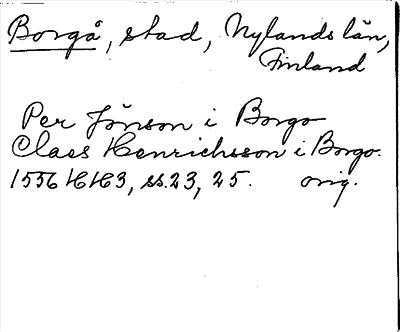 Borgå, stad, Nylands län,
Finland
Per Jönson i Borgo
Claes Henrichsson i Borgo.
1556 HH3, ss.23, 25. orig.